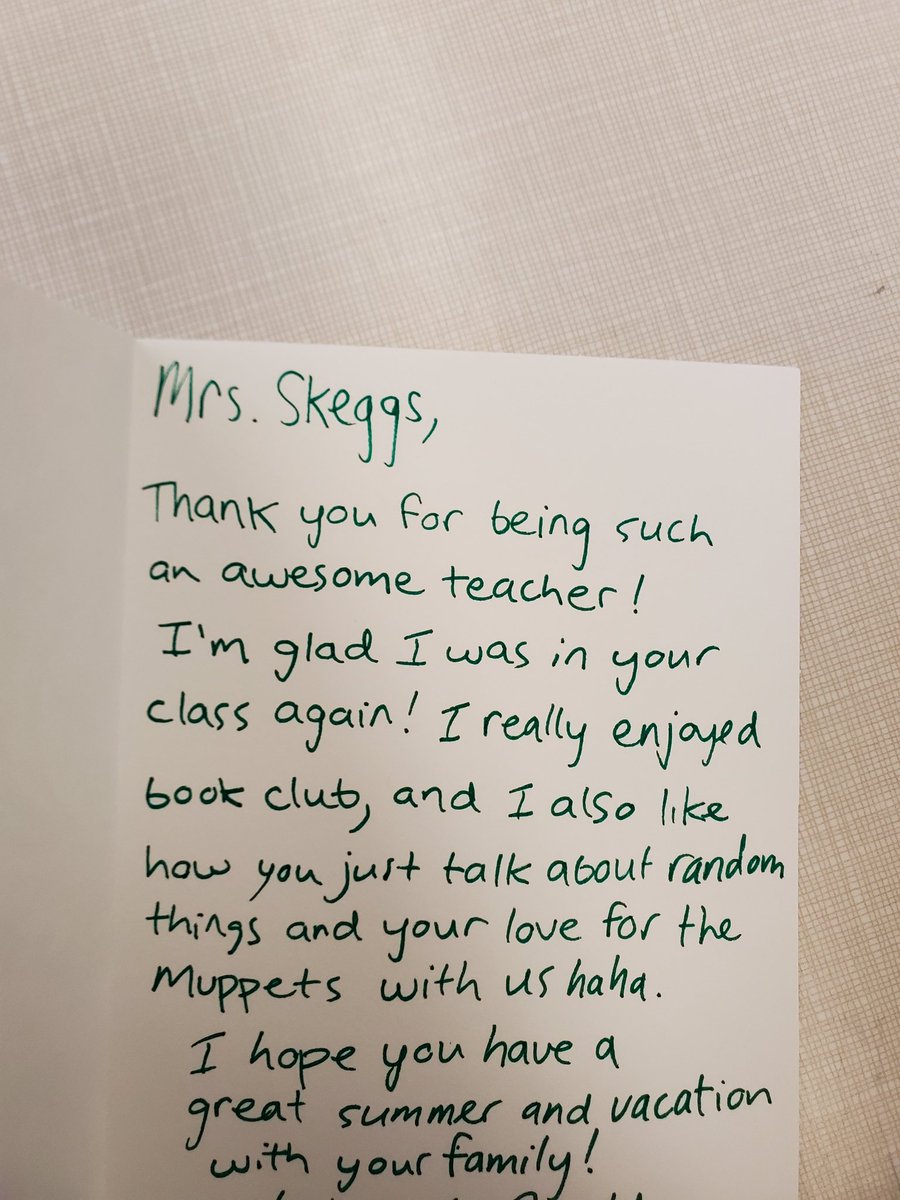 Mrs. Skeggs,
Thank you for being such
an awesome teacher!
I'm glad I was in your
class again! I really enjoyed
book club, and I also like
how you just talk about random
things and your love for the
Muppets with us haha.
I hope you have a
great summer and vacation
with your family!